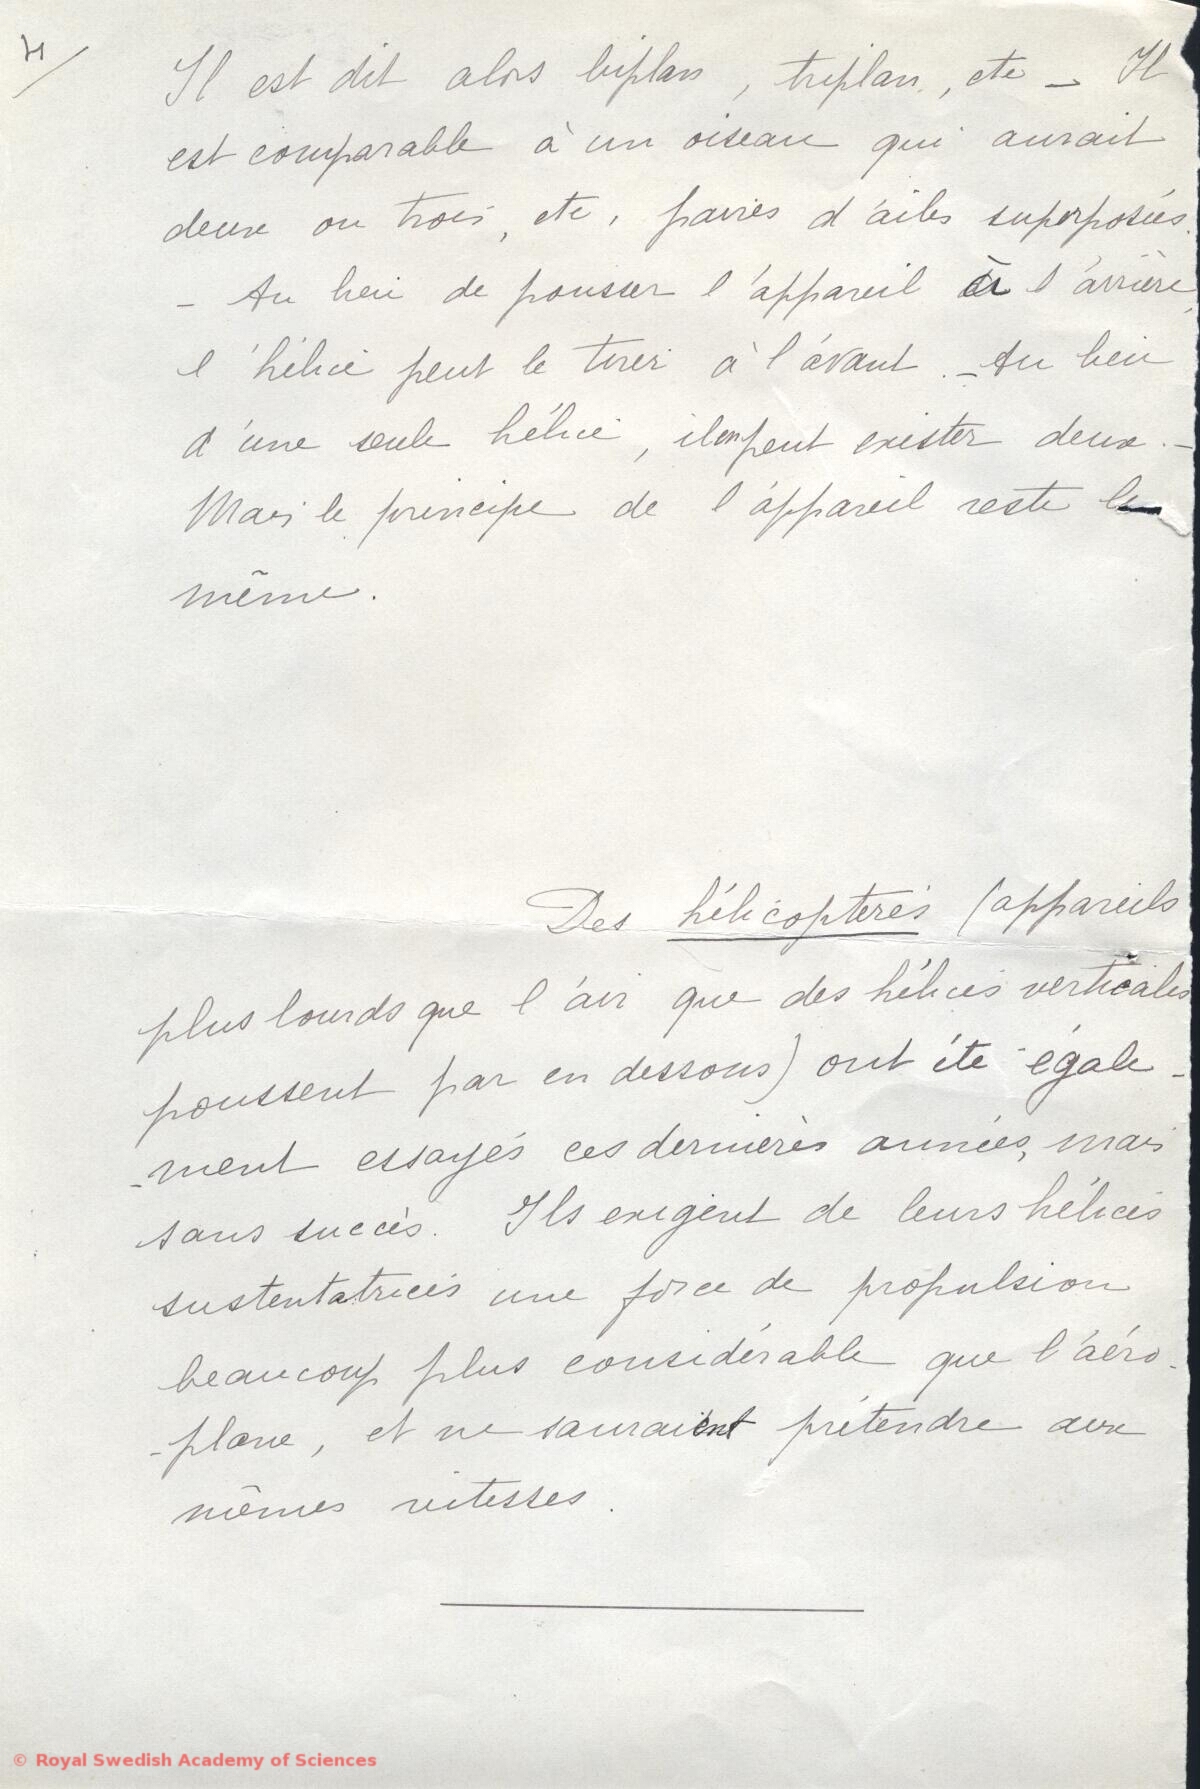 4/
Il est dit alors biplan, triplan, etc – Il
est comparable à un oiseau qui aurait
deux ou trois, etc, paires d'ailes superposées.
– Au lieu de pousser l'appareil à l'arrière,
l'hélice peut le tirer à l'avant. – Au lieu
d'une seule hélice, il en peut exister deux. –
Mais le principe de l'appareil reste le
même.
Des hélicoptères (appareils
plus lourds que l'air que des hélices verticales
poussent par en dessous) ont été égale-
-ment essayés ces dernières années, mais
sans succès. Ils exigent de leurs hélices
sustentatrices une force de propulsion
beaucoup plus considérable que l'aéro-
-plane, et ne sauraient prétendre aux
mêmes vitesses.
© Royal Swedish Academy of Sciences